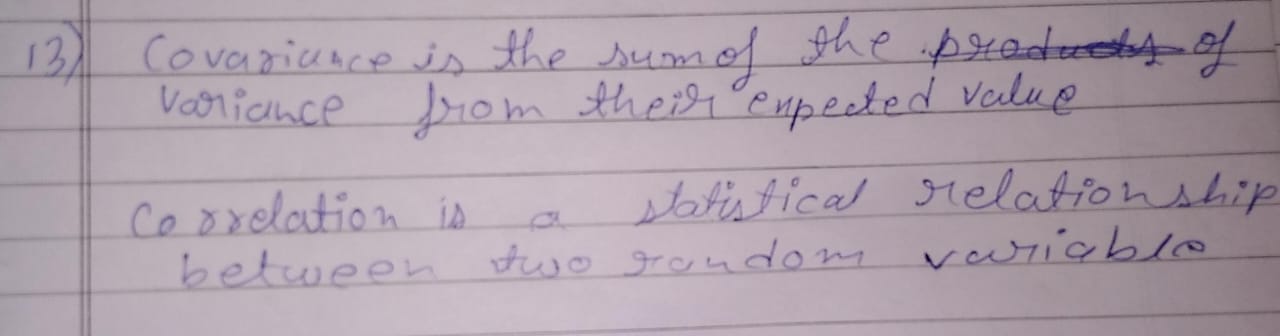 13) Covariance is the sum of the products of
variance from their expected value
Correlation is a statistical relationship
between two random variable